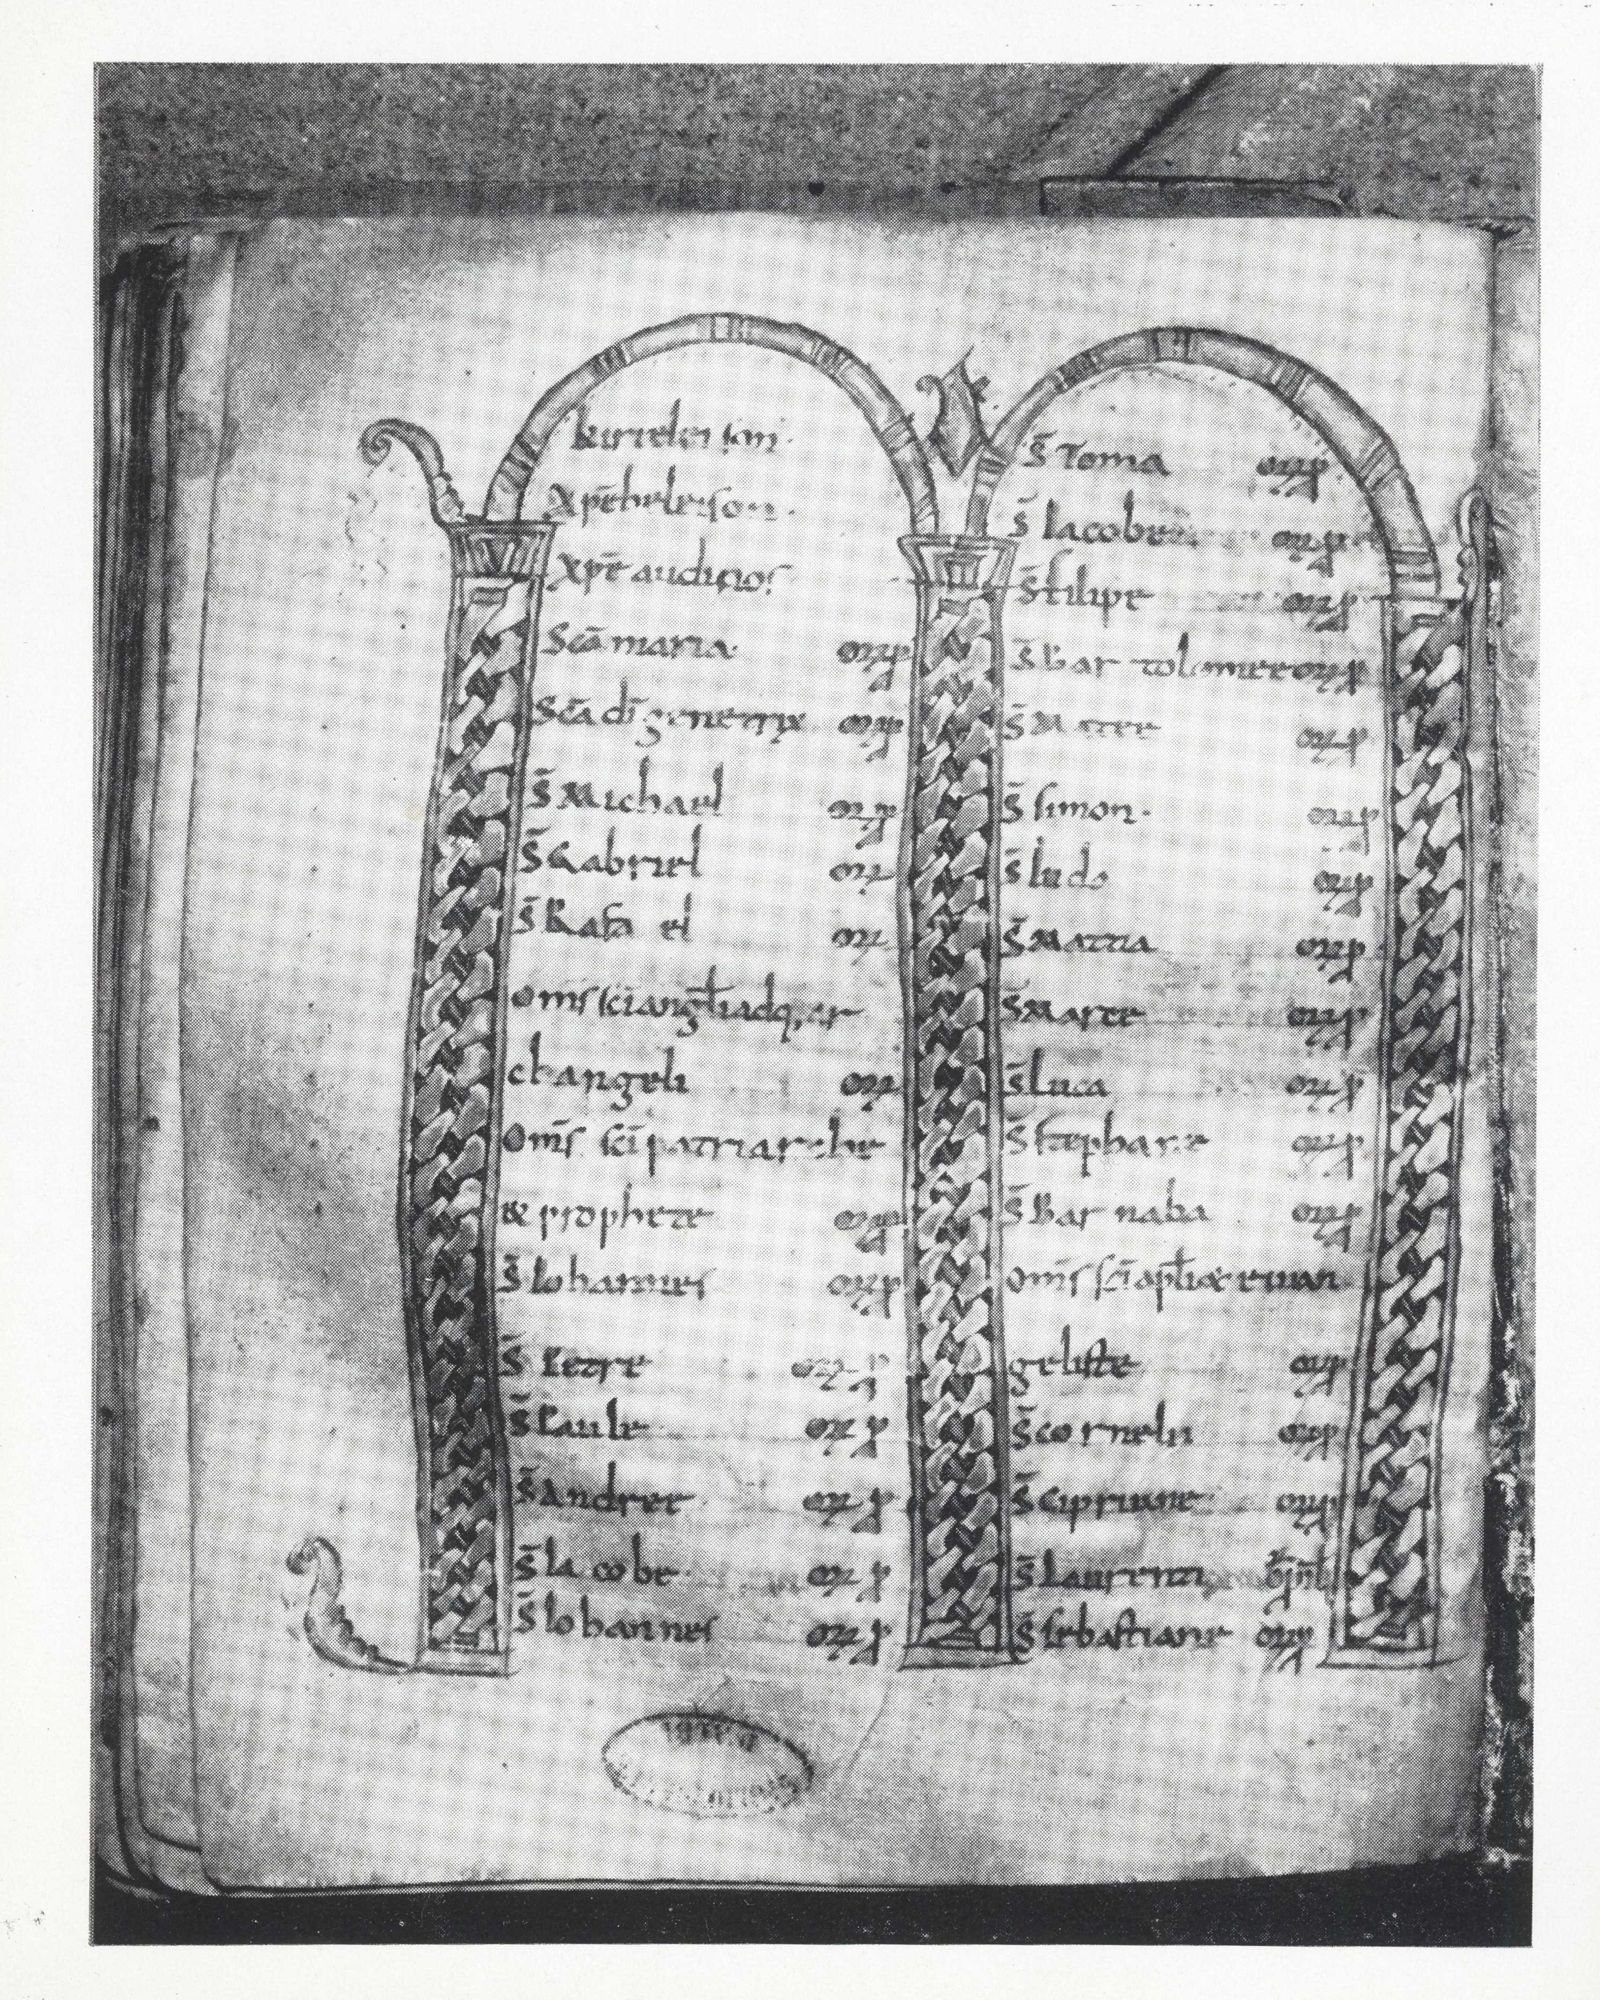 kirieleison.
Xp̄eheleison.
Xp̄e audi nos
Sc̄a maria orā p
Sc̄a dī genetrix orā p
S̄ Michael or p
S̄ Gabriel or
S̄ Rafa el or
Om̄s sc̄i angl̄i adq; ar
changeli or
Om̄s sc̄i patriarche
& prophete or p
S̄ Iohannes or p
S̄ Petre or p
S̄ Paule or p
S̄ Andree or p
S̄ Iacobe or p
S̄ Iohannes or p
S̄ Toma or p
S̄ Iacobe or p
S̄ filipe or p
S̄ Bartolomee or p
S̄ Matee or p
S̄ simon. or p
S̄ Iuda or p
S̄ Mattia or p
S̄ Marce or p
S̄ Luca or p
S̄ stephane or p
S̄ Barnaba or p
Om̄s sc̄i apl̄i & euuan
geliste or p
S̄ corneli or p
S̄ cipriane or p
S̄ Laurenti
S̄ sebastiane or p